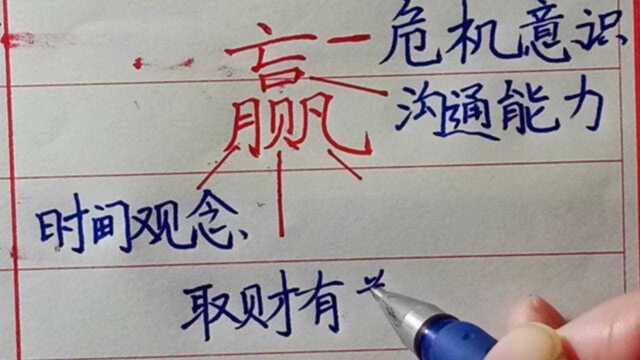 赢 危机意识
沟通能力
时间观念、
取财有